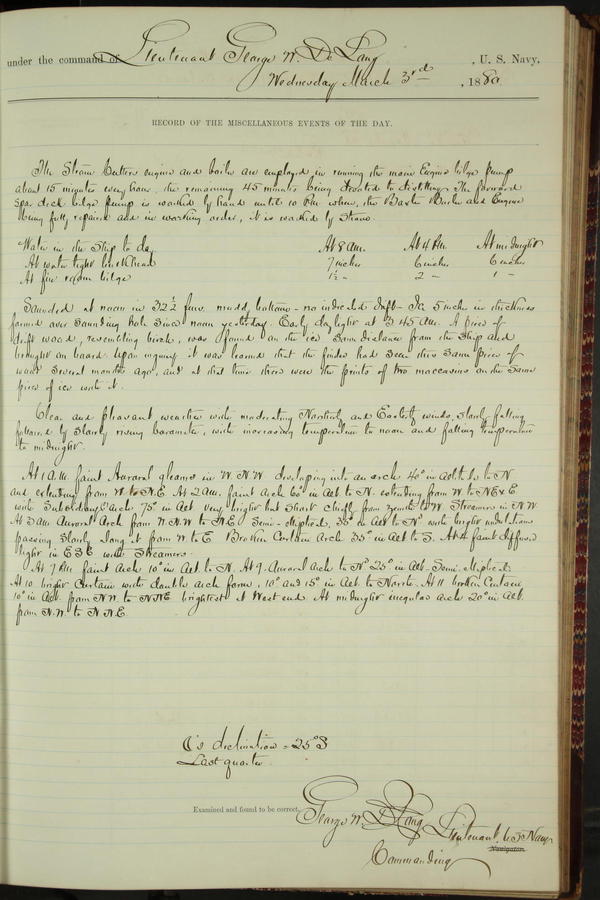 under the command of Lieutenant George W. De Long, U. S. Navy,
Wednesday March 3rd, 1880
RECORD OF THE MISCELLANEOUS EVENTS OF THE DAY.
The Steam Cutters engine and boiler are employed in running the main Engine bilge pump
about 15 minutes every hour, the remaining 45 minutes being devoted to distilling. The forward
spar deck bilge pump is worked by hand until 10 PM when, the Baxter Boiler and Engine
being fully repaired and in working order, it is worked by Steam.
Water in the Ship to day At 8 AM. At 4 PM. At midnight
At water tight bulkhead 7 inches 6 inches 6 inches
At fire room bilge 1½ " 2 " 1 "
Sounded at noon in 32½ fms. muddy bottom - no indicated drift - Ice 5 inches in thickness
formed over sounding hole since noon yesterday. Early daylight at 3.45 AM. A piece of
drift wood, resembling birch, was found on the ice some distance from the ship and
brought on board. Upon inquiry it was learned that the finder had seen this same piece of
wood several months ago, and at that time there were the prints of two moccasins on the same
piece of ice with it.
Clear and pleasant weather with moderating Northerly and Easterly winds, slowly falling
followed by slowly rising barometer, with increasing temperature to noon and falling temperature
to midnight.
At 1 A.M. faint Auroral gleams in W.N.W. developing into an arch 40° in altitude to N
and extending from W. to N.E. At 2 AM. faint arch 60° in alt to N. extending from W to NE x E
with Subsidiary arch 75° in alt very bright but short chiefly from zenith to W Streamers in N.W.
At 3 AM Auroral Arch from W.N.W to N.E. Semi-elliptical, 35° in alt to N° with bright undulations
passing slowly along it from W to E Broken Curtain Arch 35° in alt to S. At 4 faint diffused
light in ESE with Streamers.
At 7 PM faint arch 10° in alt to N. At 9 Auroral arch to N° 25° in alt. Semi-elliptical.
At 10 bright Curtain with double arch form, 10° and 15° in alt. to North. At 11 broken Curtain
10° in alt. from NW. to NNE brightest at West end. At midnight irregular arch 20° in alt.
from N.W. to N.N.E.
☾'s declination = 25° S
Last quarter
Examined and found to be correct. George W. De Long Lieutenant U.S. Navy
Navigator.
Commanding